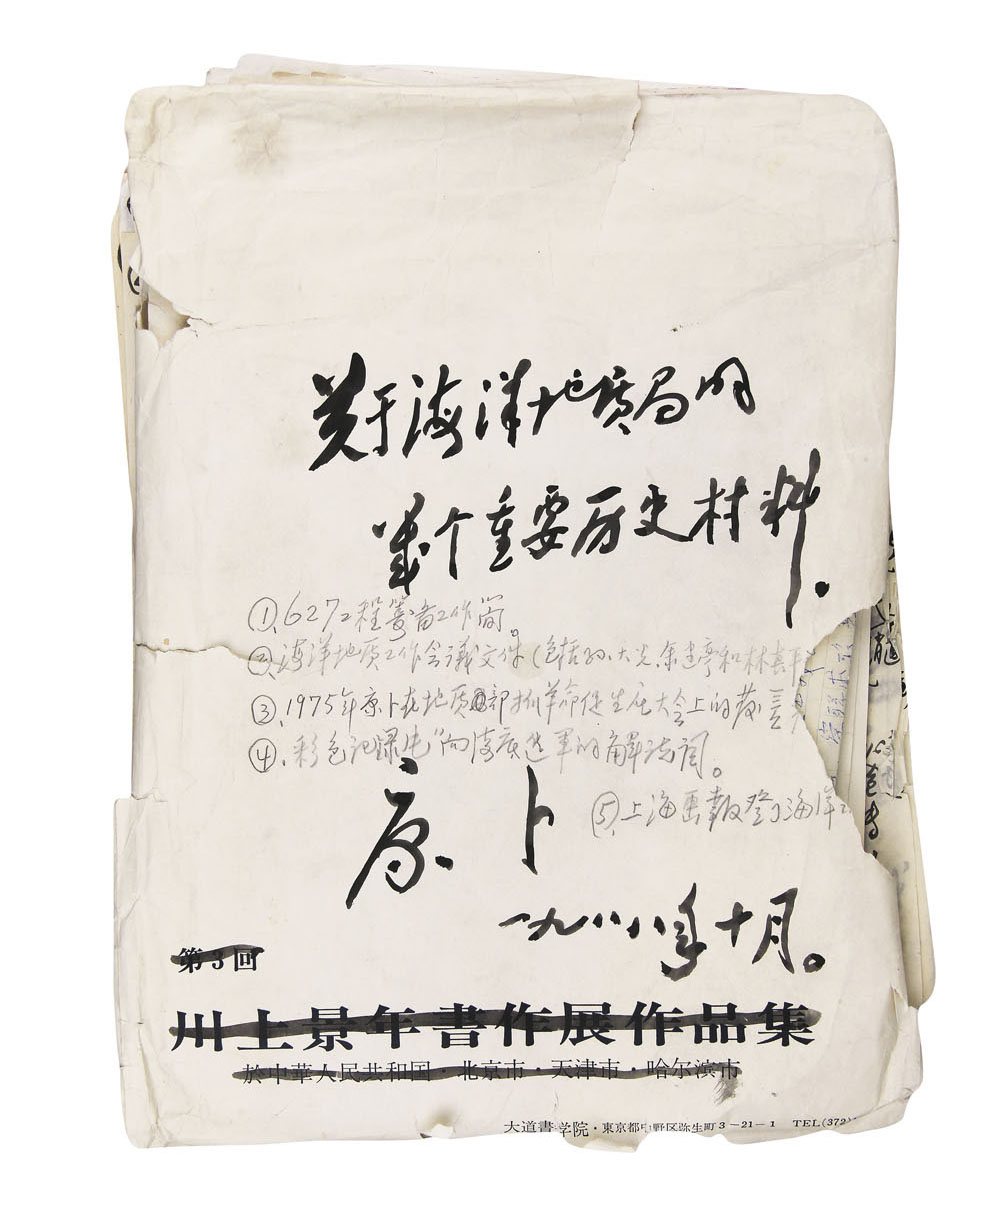 关于海洋地质局的
几个重要历史材料.
①.627工程筹备工作简。
②.海洋地质工作会议文件(包括孙大光.余建亭和林
③.1975年原卜在地质部抓革命促生产大会上的发言
④.彩色记录片"向海底进军的解说词。
原卜
⑤.上海画報登了海岸
一九八八年十月。
第3回
川上景年書作展作品集
於中華人民共和国・北京市・天津市・哈尔滨市
大道書学院・東京都中野区弥生町3-21-1 TEL(372)